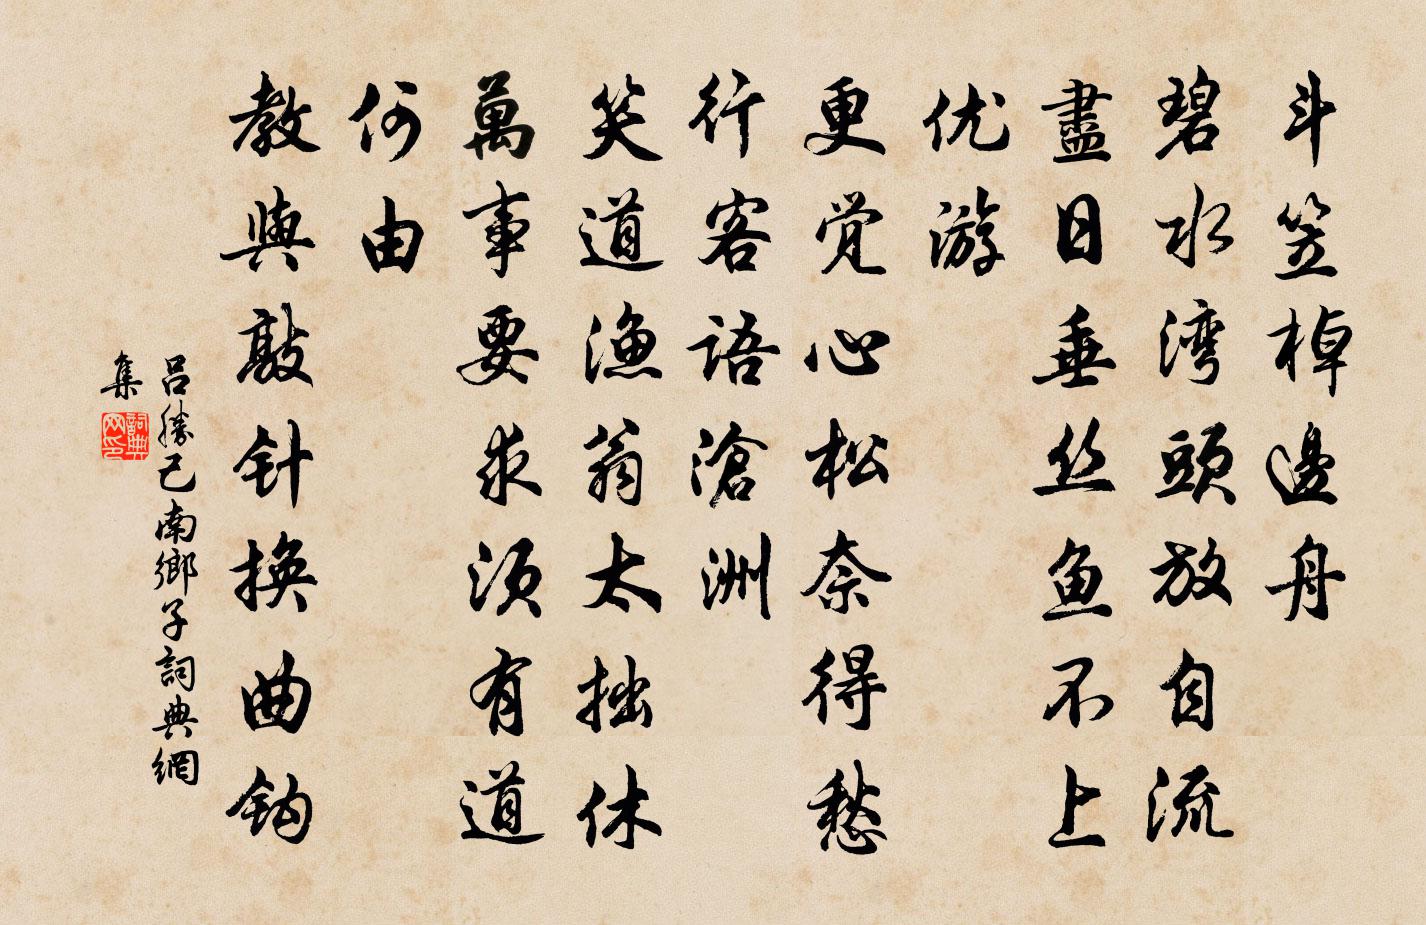 斗笠棹邊舟
碧水湾頭放自流
盡日垂丝鱼不上
优游
更觉心松奈得愁
行客語滄洲
笑道渔翁太拙休
萬事要求须有道
何由
教與敲针换曲钩
呂勝己南鄉子詞典網
集
詞典网印